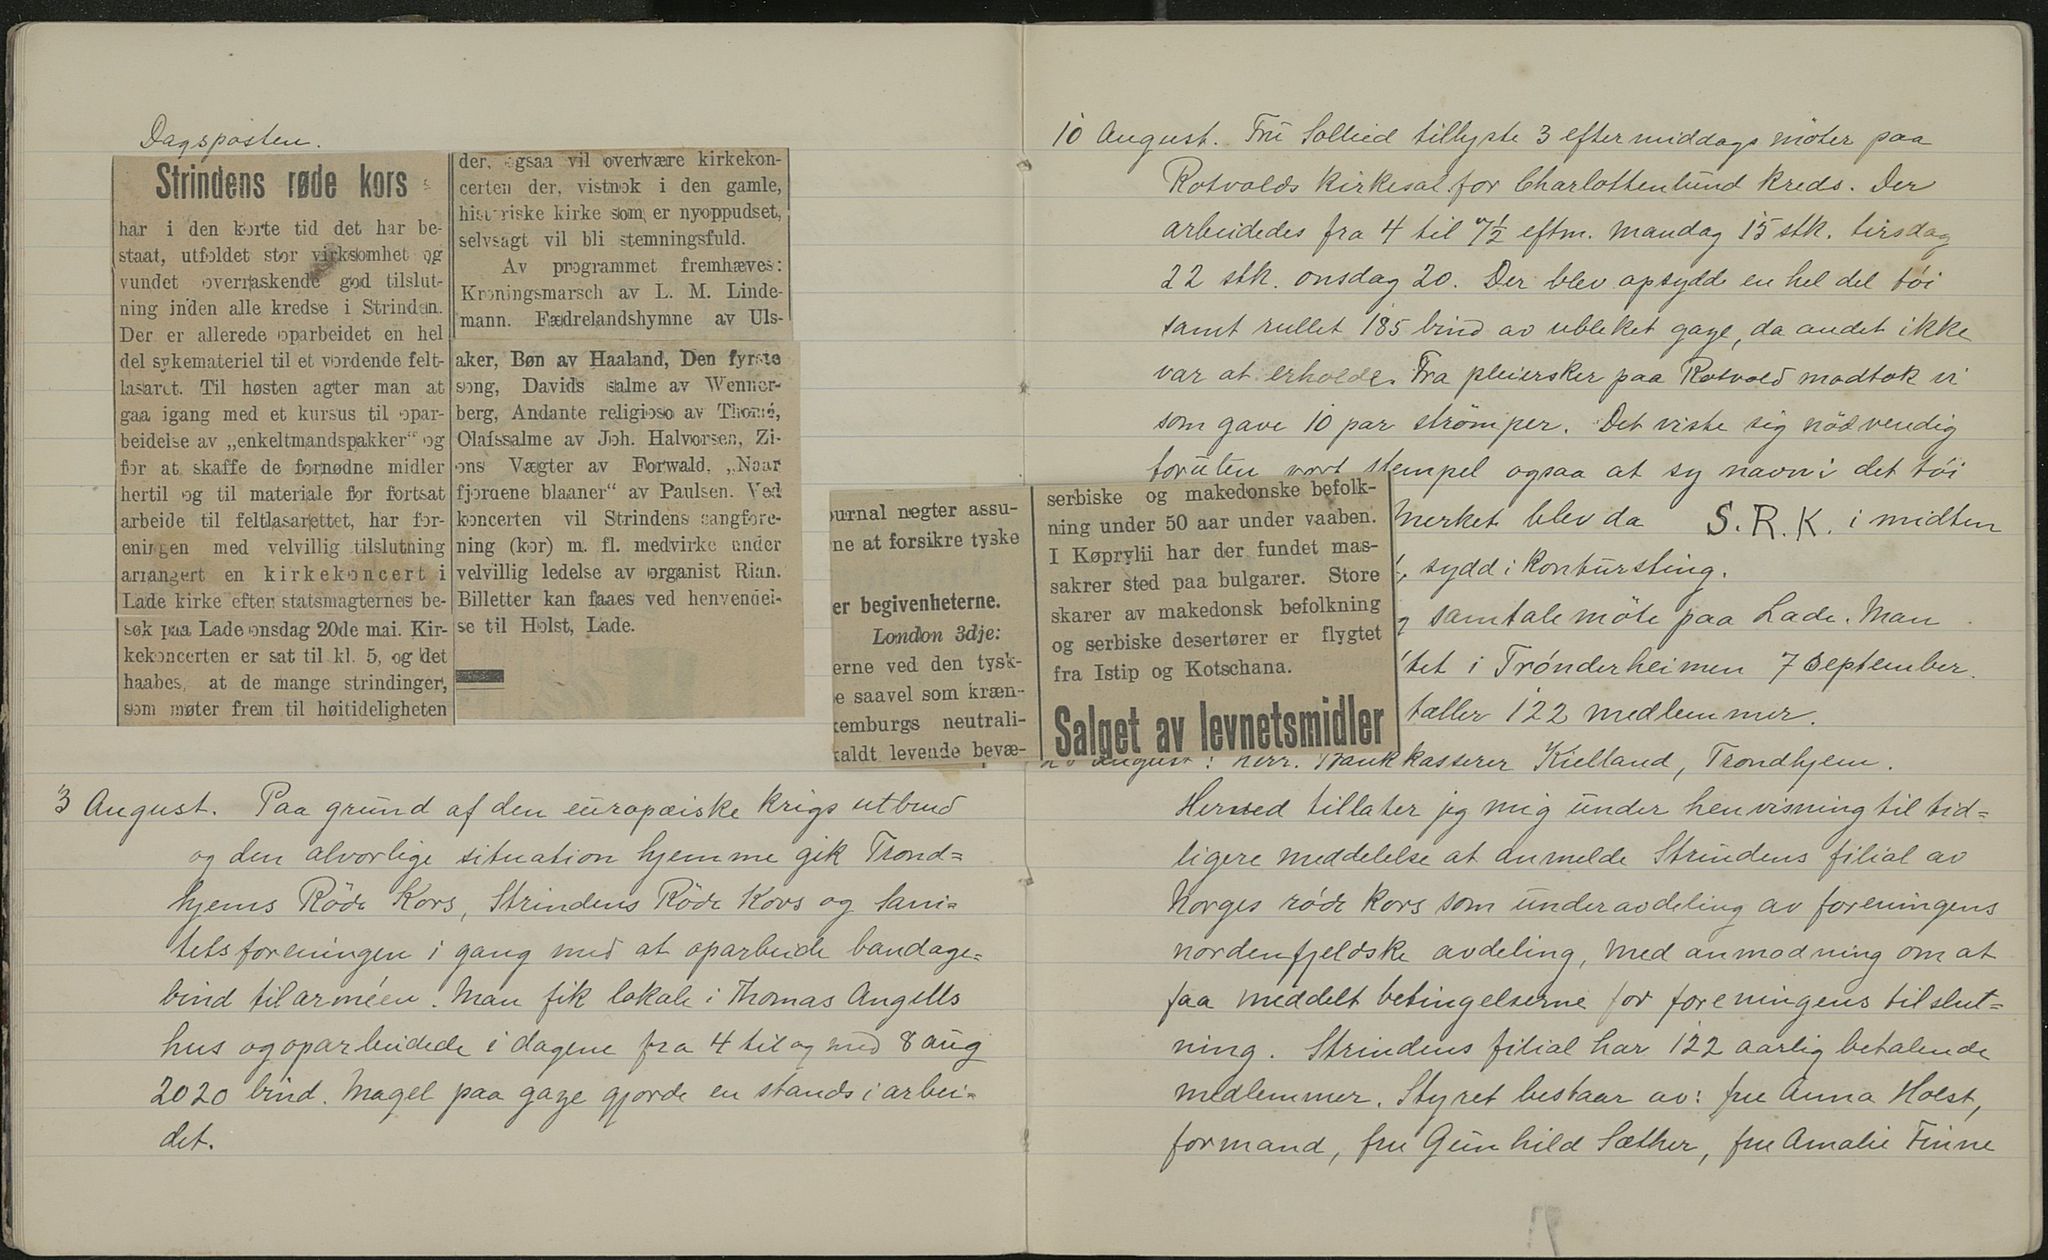 Dagsposten.
Strindens røde kors
har i den korte tid det har be-
staat, utfoldet stor virksomhet og
vundet overraskende god tilslut-
ning inden alle kredse i Strinden.
Der er allerede oparbeidet en hel
del sykemateriel til et vordende felt-
lasaret. Til høsten agter man at
gaa igang med et kursus til opar-
beidelse av „enkeltmandspakker“ og
for at skaffe de fornødne midler
hertil og til materiale for fortsat
arbeide til feltlasarettet, har for-
eningen med velvillig tilslutning
arrangert en kirkekoncert i
Lade kirke efter statsmagternes be-
søk paa Lade onsdag 20de mai. Kir-
kekoncerten er sat til kl. 5, og det
haabes, at de mange strindinger,
som møter frem til høitideligheten
der, ogsaa vil overtvære kirkekon-
certen der, vistnok i den gamle,
historiske kirke som er nyoppudset,
selvsagt vil bli stemningsfuld.
Av programmet fremhæves:
Kroningsmarsch av L. M. Linde-
mann. Fædrelandshymne av Uls-
aker, Bøn av Haaland, Den fyrste
song, Davids salme av Wenner-
berg, Andante religioso av Thomé,
Olafssalme av Joh. Halvorsen, Zi-
ons Vægter av Forwald, „Naar
fjordene blaaner“ av Paulsen. Ved
koncerten vil Strindens sangfore-
ning (kor) m. fl. medvirke under
velvillig ledelse av organist Rian.
Billetter kan faaes ved henvendel-
se til Holst, Lade.
3 August. Paa grund af den europæiske krigs utbrud
og den alvorlige situation hjemme gik Trond=
hjems Røde Kors, Strindens Røde Kors og Sani=
tetsforeningen i gang med at oparbeide bandage=
bind til arméen. Man fik lokale i Thomas Angells
hus og oparbeidede i dagene fra 4 til og med 8 aug
2020 bind. Magel paa gaze gjorde en stands i arbei=
det.
10 August. Fru Sollied tillyste 3 eftermiddags møter paa
Rotvolds kirkesal for Charlottenlund kreds. Der
arbeidedes fra 4 til 7½ eftm. mandag 15 stk. tirsdag
22 stk. onsdag 20. Der blev opsydd en hel del tøi
samt rullet 185 bind av ubleket gaze, da andet ikke
var at erholde. Fra pleiersker paa Rotvold modtok vi
som gave 10 par strømper. Det viste sig nødvendig
foruten vort stempel ogsaa at sy navn i det tøi
Merket blev da S.R.K. i midten
sydd i kontursting.
samtale møte paa Lade. Man
tet i Trønderheimen 7 September.
tæller 122 medlemmer.
ournal negter assu-
ne at forsikre tyske
er begivenheterne.
London 3dje:
erne ved den tysk-
e saavel som kræn-
xemburgs neutrali-
kaldt levende bevæ-
serbiske og makedonske befolk-
ning under 50 aar under vaaben.
I Køprylii har der fundet mas-
sakrer sted paa bulgarer. Store
skarer av makedonsk befolkning
og serbiske desertører er flygtet
fra Istip og Kotschana.
Salget av levnetsmidler
August: Herr. Bankkasserer Kielland, Trondhjem.
Herved tillater jeg mig under henvisning til tid=
ligere meddelelse at anmelde Strindens filial av
Norges røde kors som underavdeling av foreningens
nordenfjeldske avdeling, med anmodning om at
faa meddelt betingelserne for foreningens tilslut=
ning. Strindens filial har 122 aarlig betalende
medlemmer. Styret bestaar av: fru Anna Holst,
formand, fru Gunhild Sæther, fru Amalie Finne